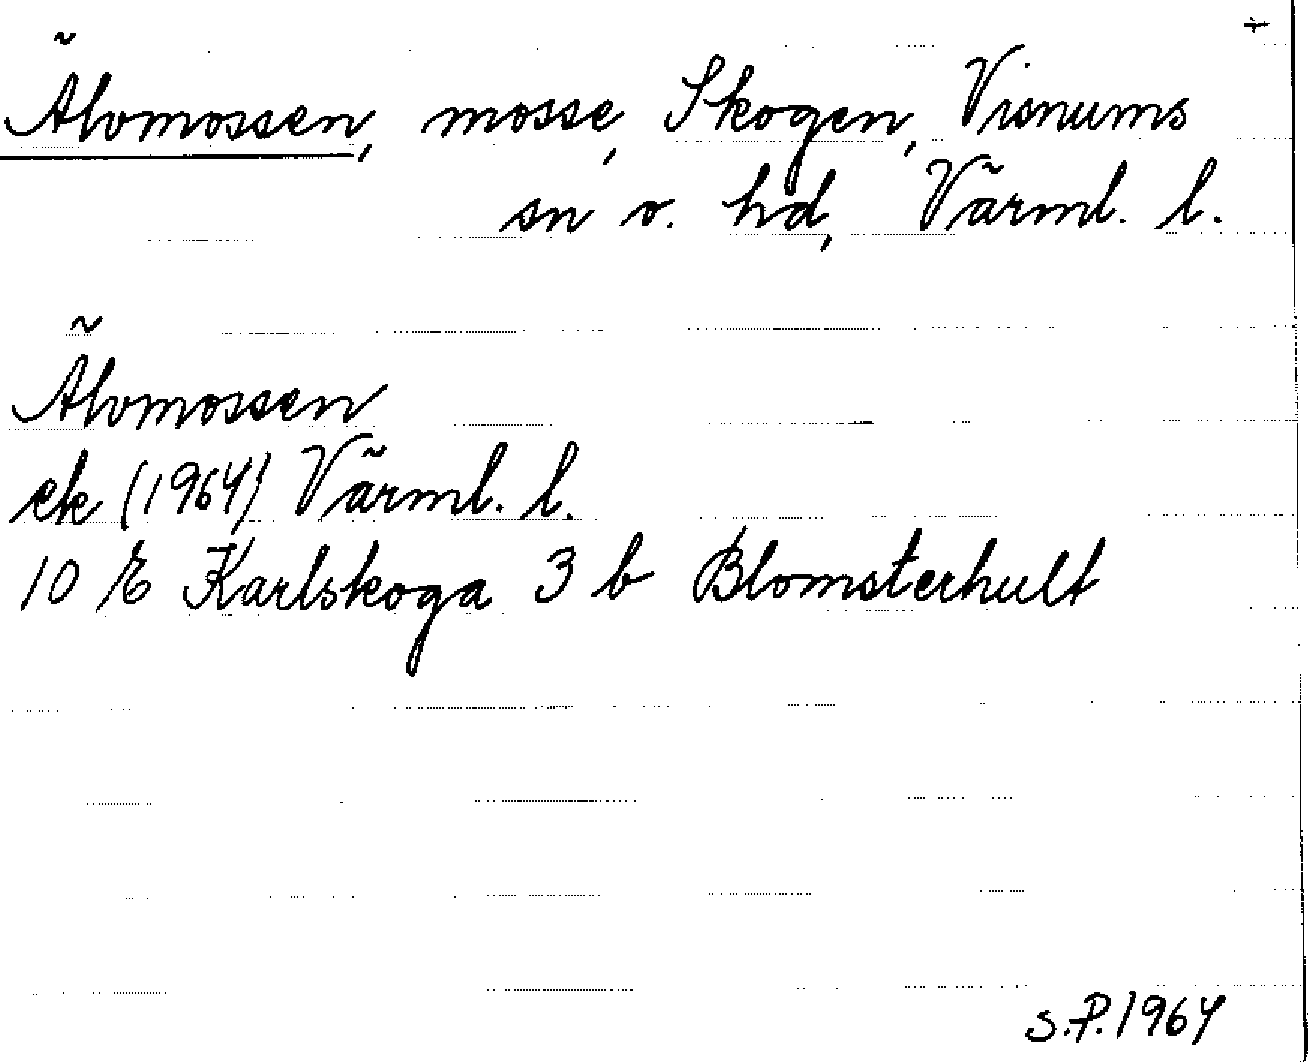 +
Älvmossen, mosse, Skogen, Visnums
sn o. hd, Värml. l.
Älvmossen
ek (1964) Värml. l.
10 E Karlskoga 3 b Blomsterhult
S.P. 1964